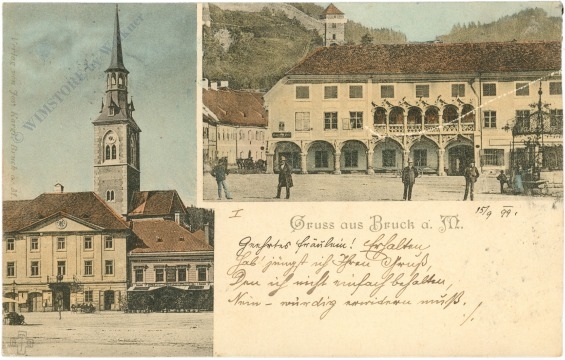 WIMSTORE by Wimmer
I
Gruss aus Bruck a. M.
15/9 99.
Geehrtes Fräulein! Erhalten
Hab' jüngst ich Ihren Gruß,
Den ich nicht einfach behalten,
Nein - würdig erwidern muß.